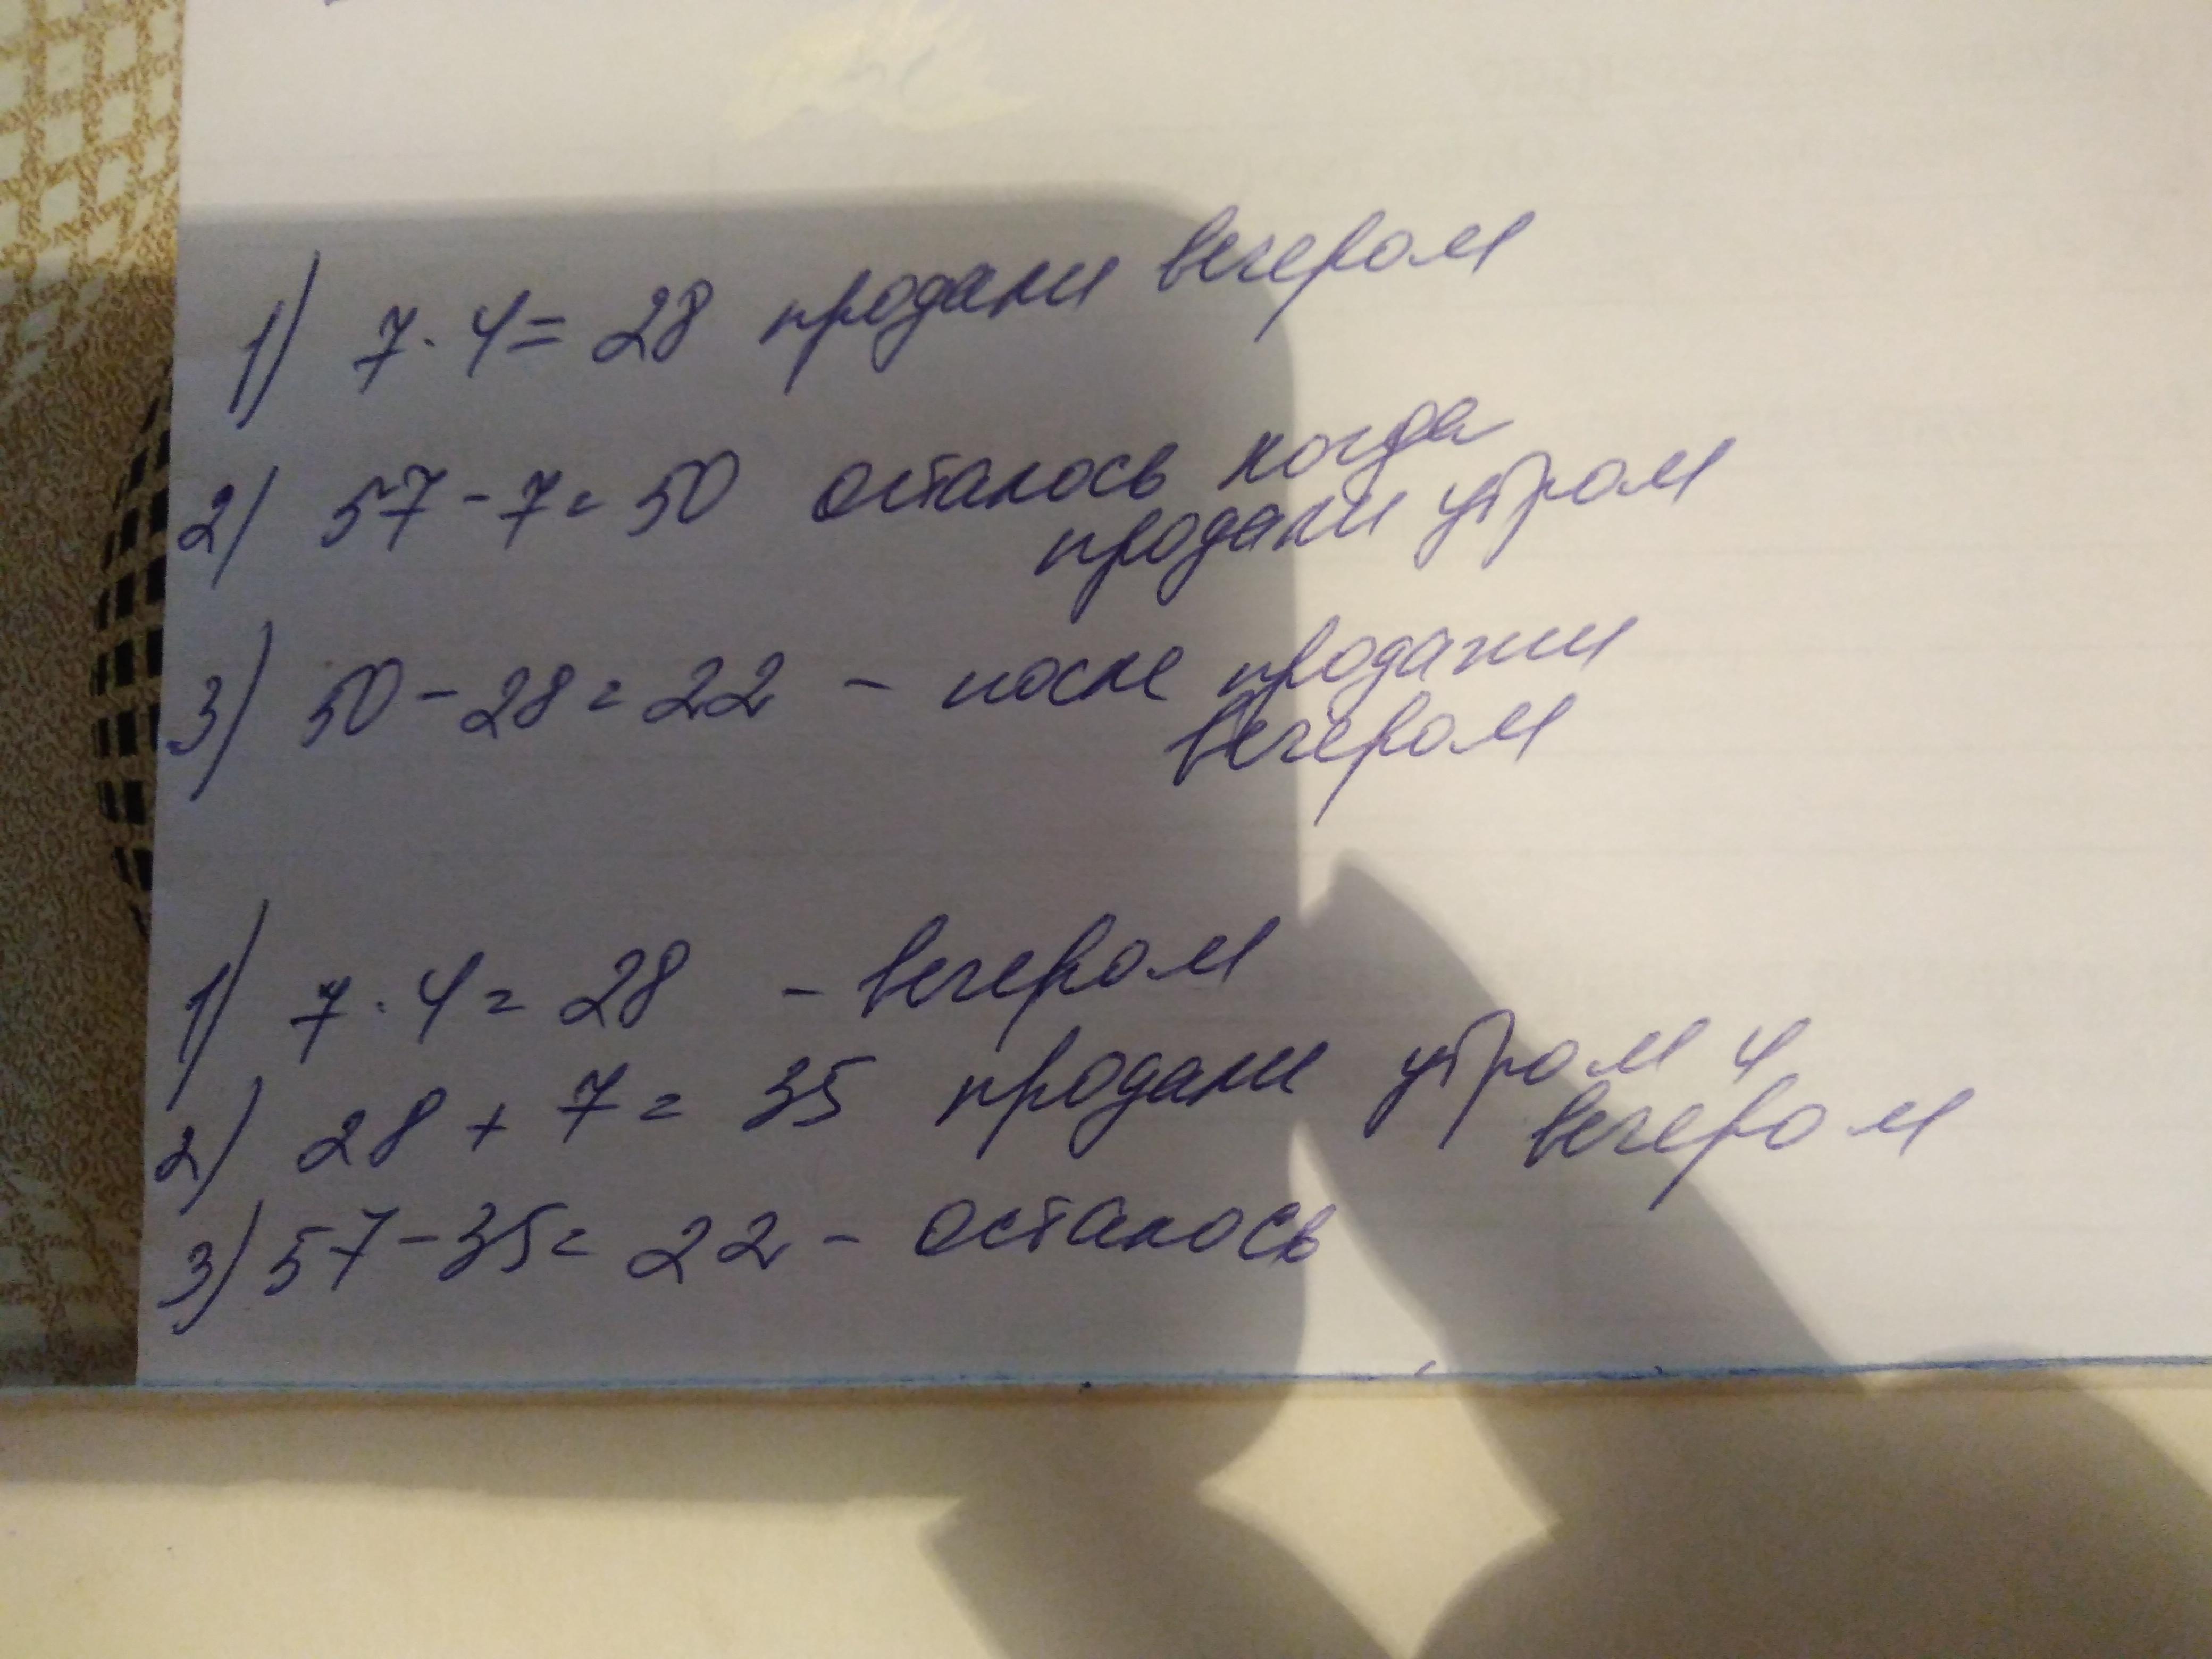 1) 7·4= 28 продали вечером
2) 57-7= 50 осталось когда
продали утром
3) 50-28=22 - после продажи
вечером
1) 7·4= 28 - вечером
2) 28+7= 35 продали утром и
вечером
3) 57-35= 22 - осталось